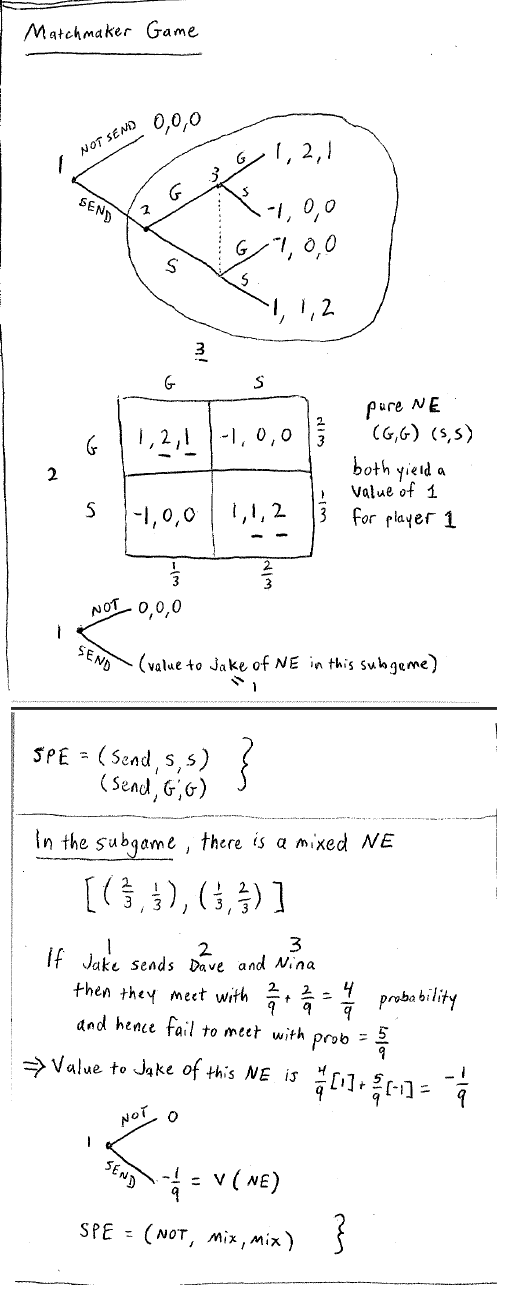 Matchmaker Game
NOT SEND 0,0,0
1
SEND
2
G
S
3
G 1, 2, 1
S -1, 0, 0
G -1, 0, 0
S 1, 1, 2
3
G S
2
G 1, 2, 1 -1, 0, 0 2/3
S -1, 0, 0 1, 1, 2 1/3
1/3 2/3
pure NE
(G,G) (S,S)
both yield a
value of 1
for player 1
1
NOT 0,0,0
SEND (value to Jake of NE in this subgame)
" 1
SPE = (Send, S, S) }
(Send, G, G)
In the subgame, there is a mixed NE
[(2/3, 1/3), (1/3, 2/3)]
1 2 3
If Jake sends Dave and Nina
then they meet with 2/9 + 2/9 = 4/9 probability
and hence fail to meet with prob = 5/9
⇒ Value to Jake of this NE is 4/9[1] + 5/9[-1] = -1/9
1
NOT 0
SEND -1/9 = V(NE)
SPE = (NOT, mix, mix) }